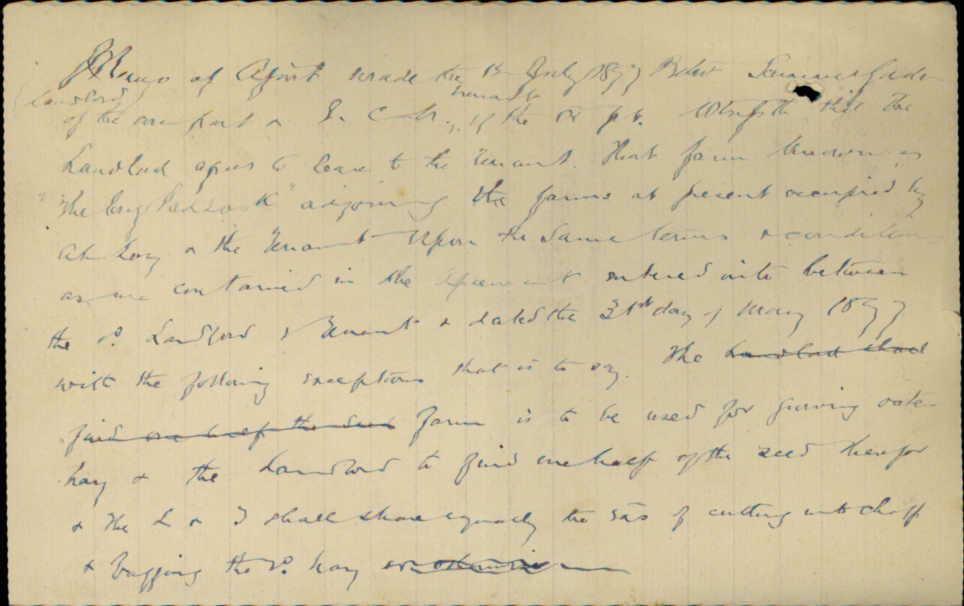 Memo of Agrmt made the 1st July 1897 Between
(Landlord) Tenant
of the one part & J. C. of the o. pt. Witnesseth that The
Landlord agrees to lease to the Tenant. That farm known as
"The Long Paddock" adjoining the farms at present occupied by
& the Tenant Upon the same terms & conditions
as are contained in the Agreement entered into between
the sd. Landlord & Tenant & dated the 31st day of May 1897
with the following exceptions that is to say. The Landlord shall
find one half the seed farm is to be used for growing oaten
hay & the Landlord to find one half of the seed therefor
& the L & T shall share equally the exs of cutting into chaff
& bagging the sd. hay